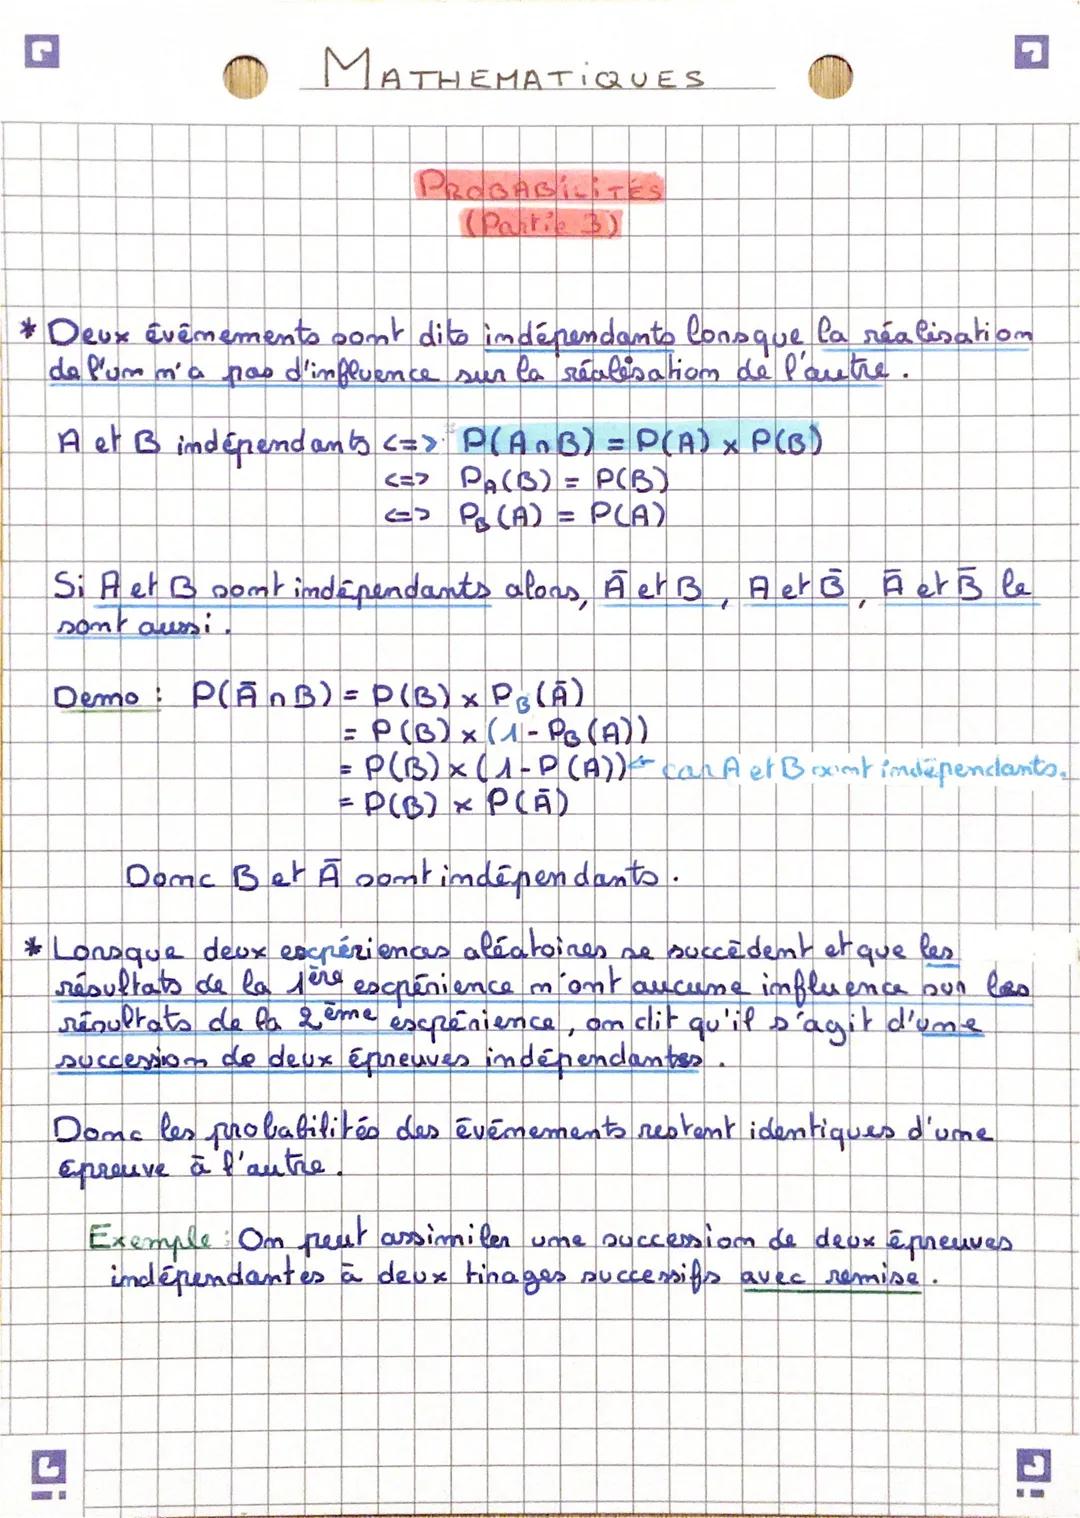 MATHEMATIQUES
PROBABILITÉS
(Partie 3)
* Deux événements sont dits indépendants lorsque la réalisation
de l'un n'a pas d'influence sur la réalisation de l'autre.
A et B indépendants <=> P(A∩B) = P(A) × P(B)
<=> P_A(B) = P(B)
<=> P_B(A) = P(A)
Si A et B sont indépendants alors, Ā et B, A et B̄, Ā et B̄ le
sont aussi.
Demo : P(Ā∩B) = P(B) × P_B(Ā)
= P(B) × (1 - P_B(A))
= P(B) × (1 - P(A)) ← car A et B sont indépendants.
= P(B) × P(Ā)
Donc B et Ā sont indépendants.
* Lorsque deux expériences aléatoires se succèdent et que les
résultats de la 1ère expérience n'ont aucune influence sur les
résultats de la 2ème expérience, on dit qu'il s'agit d'une
succession de deux épreuves indépendantes.
Donc les probabilités des événements restent identiques d'une
épreuve à l'autre.
Exemple : On peut assimiler une succession de deux épreuves
indépendantes à deux tirages successifs avec remise.